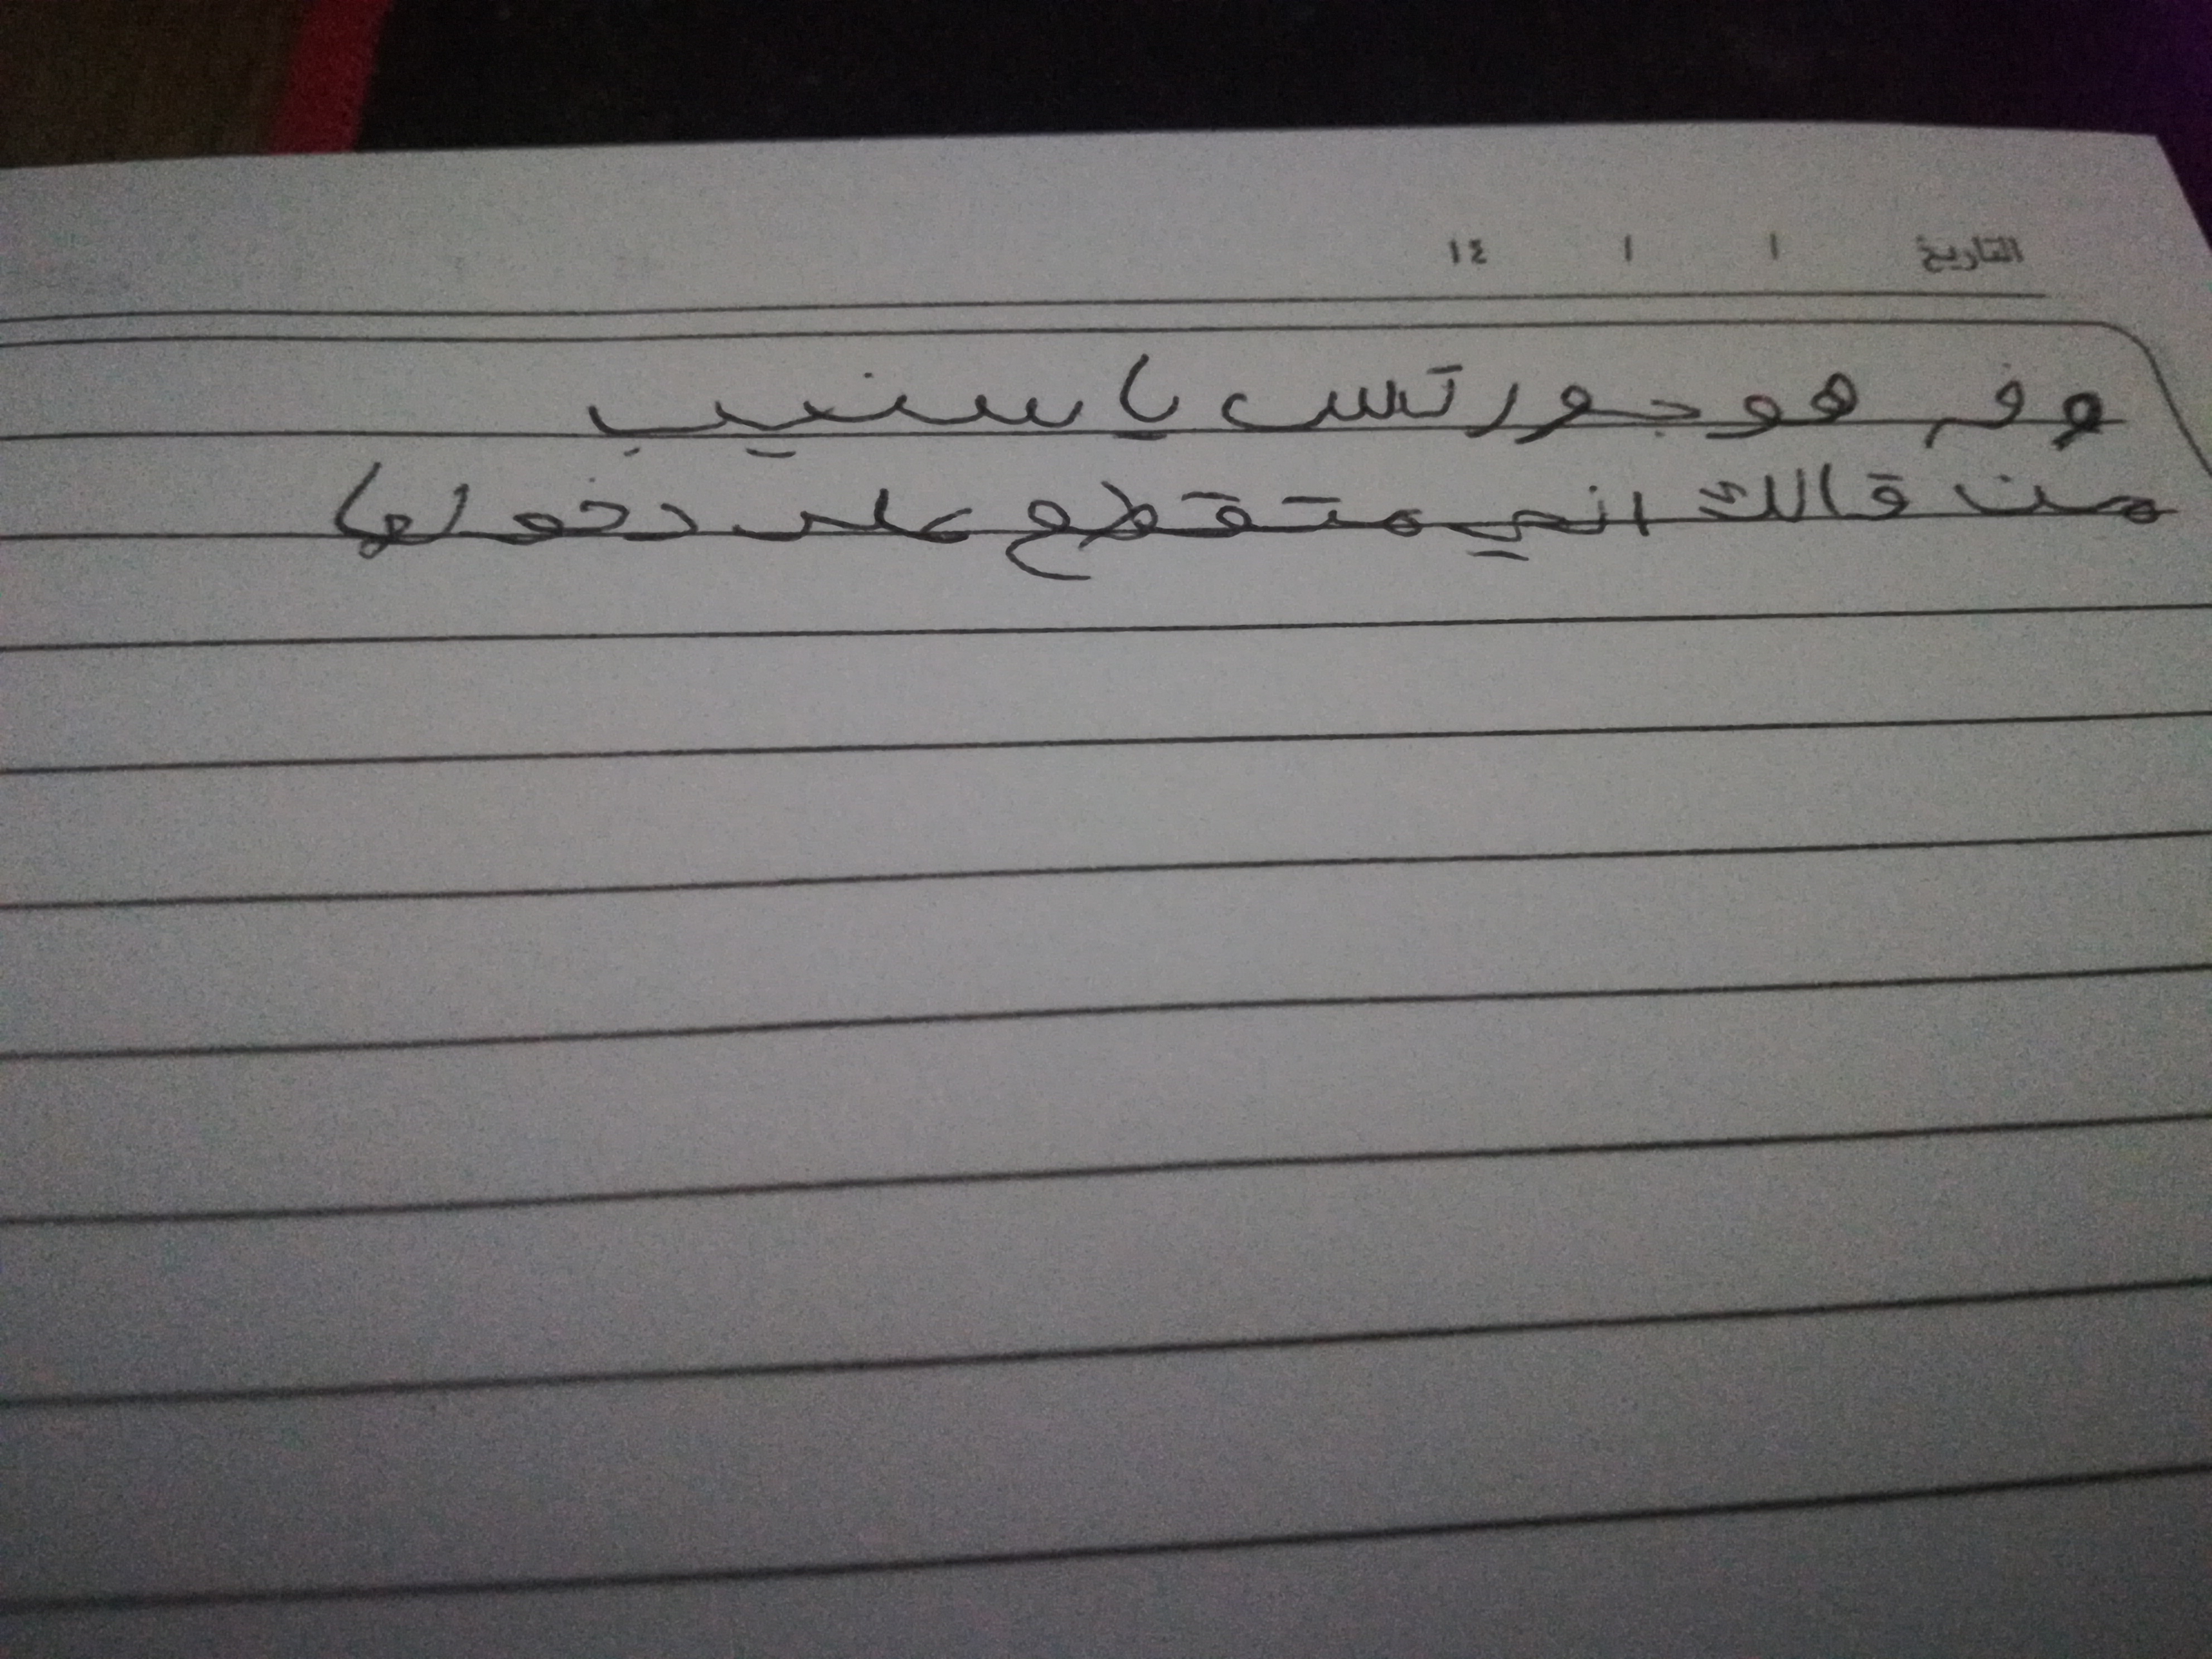 التاريخ / / ١٤
وفر هوجورتس يا سنيب
من قالك اني متقطع على دخولها